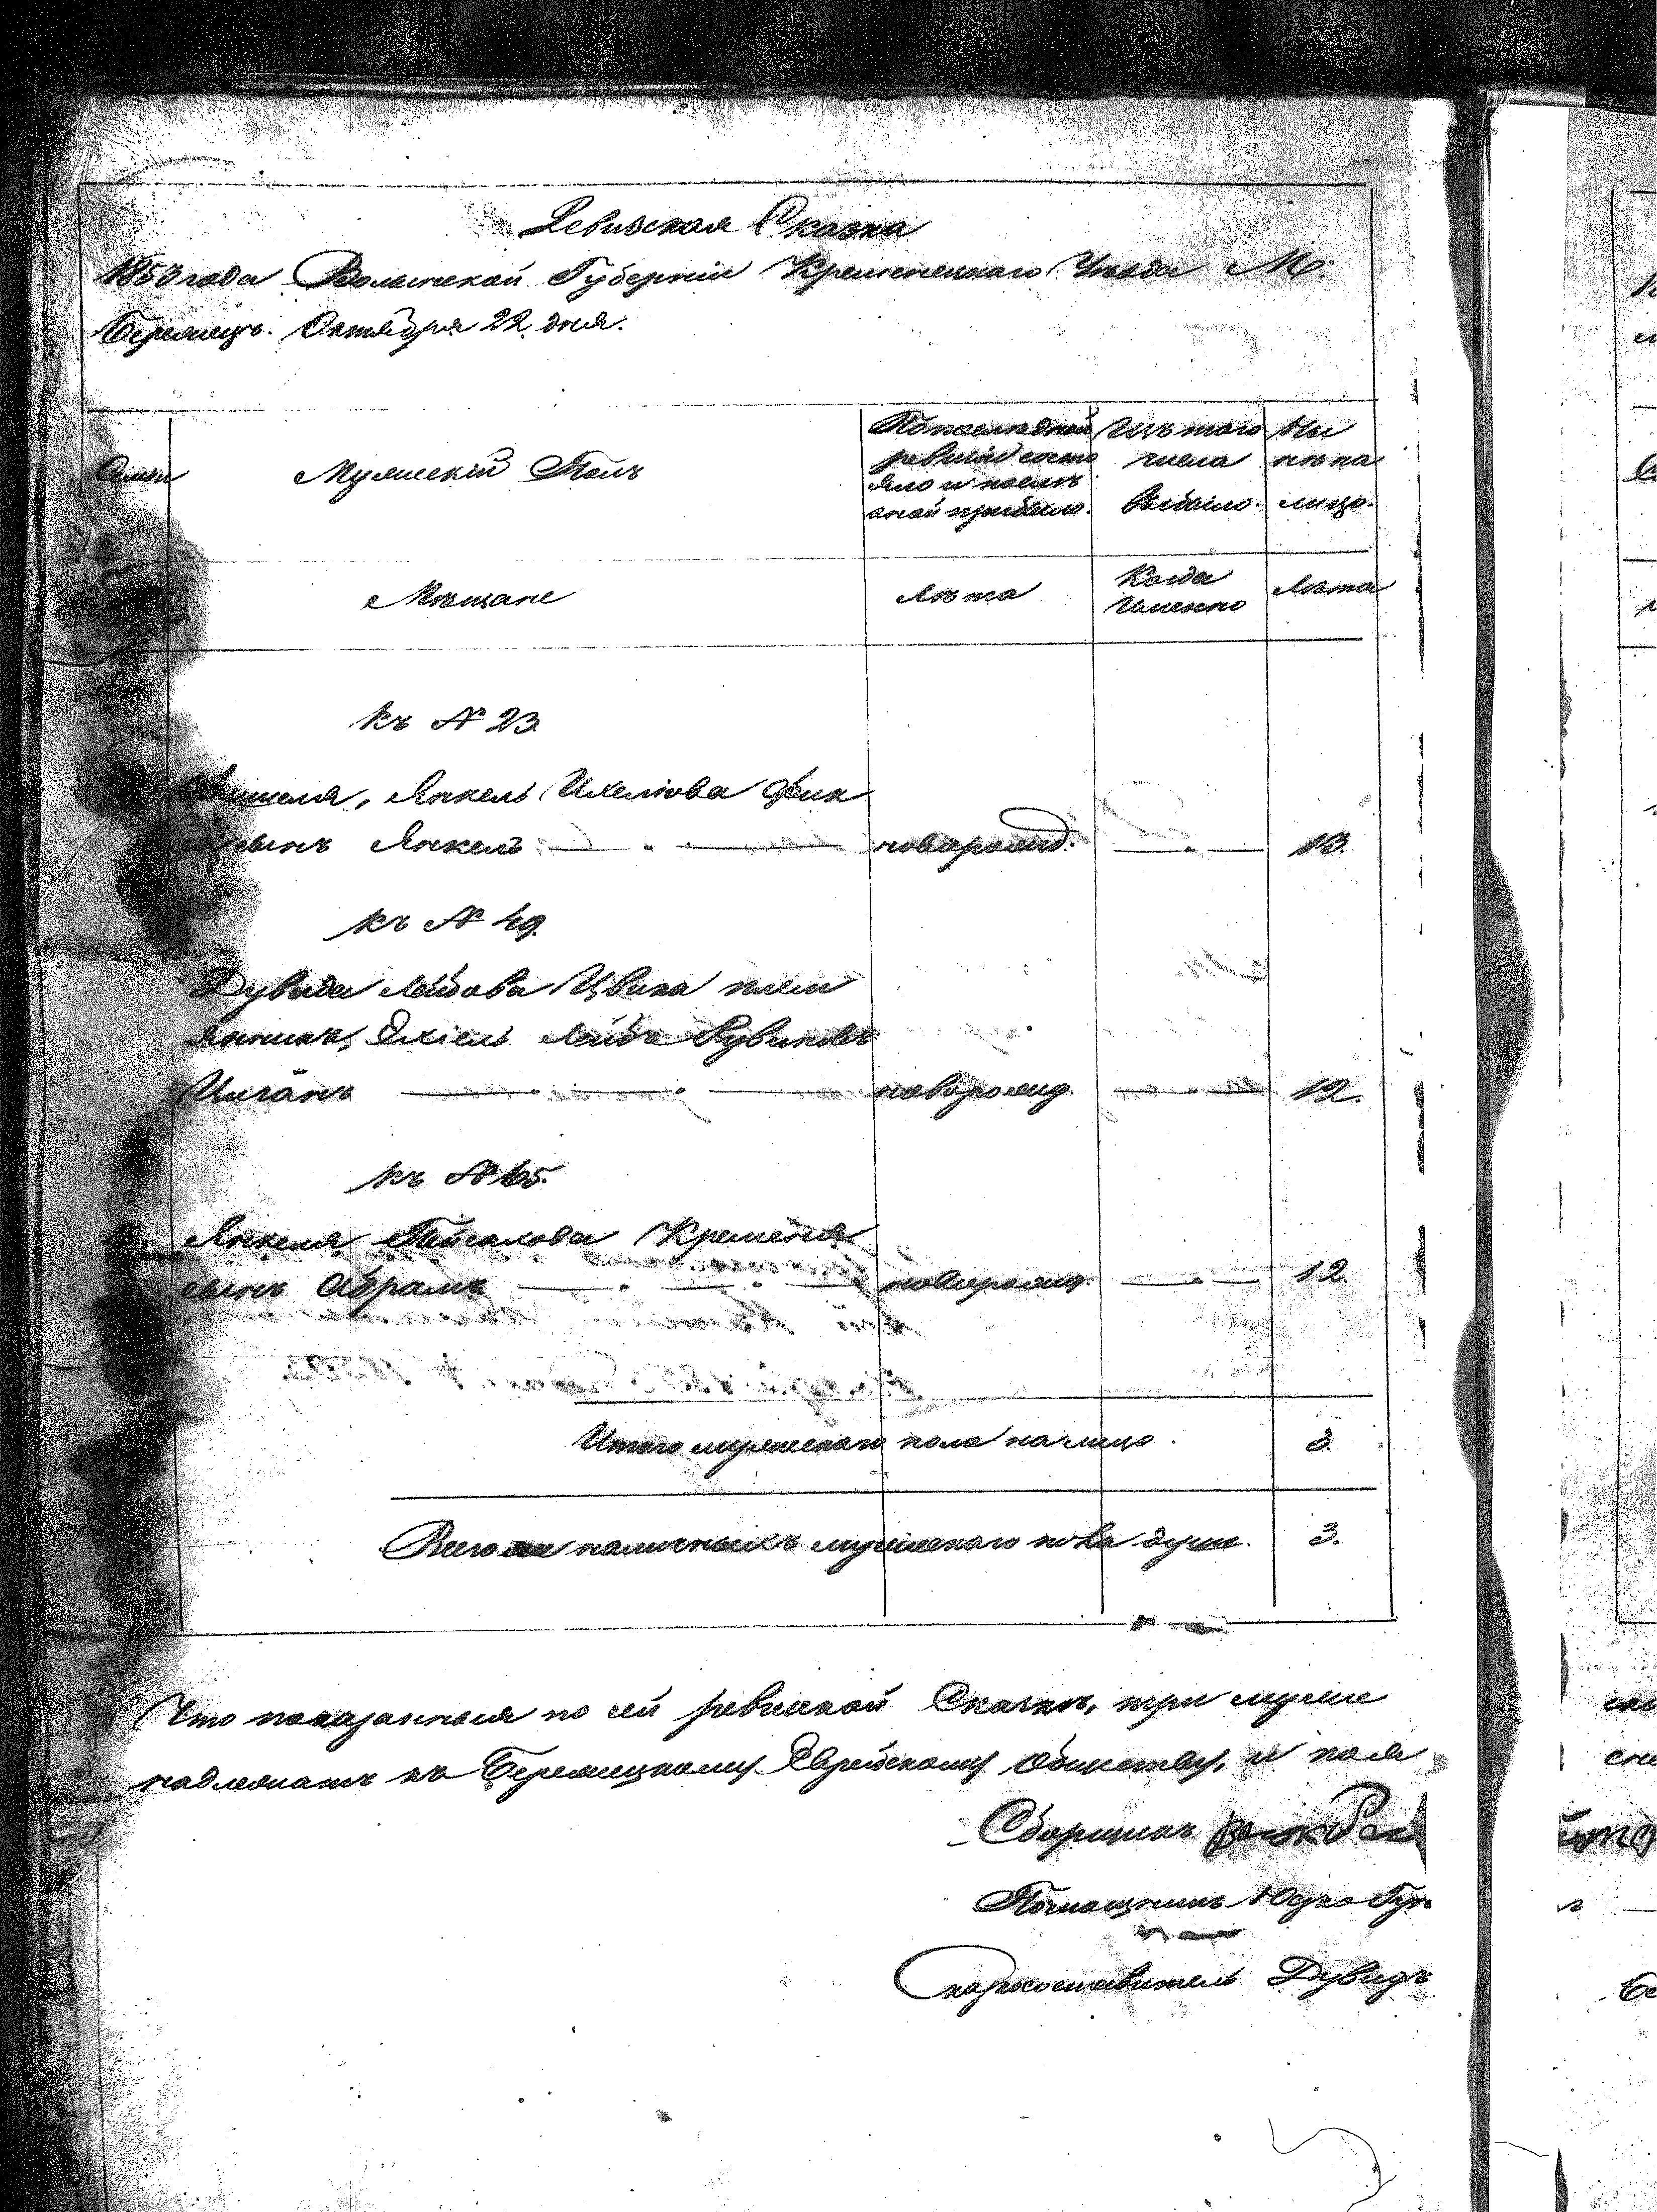 Ревизская Сказка
1853 года Волынской Губерніи Кременецкаго Уезда М.
Бережцъ. Октября 22 дня.
Семьи
Мужескій Полъ
По последней ревизіи состояло и после оной прибыло.
Изъ того числа выбыло.
Ны не на лицо.
Мещане
Лета
Когда Именно
Лета
Къ № 23.
Янкель
сынъ Янкель новорожд. 13.
Къ № 49.
Дувида Лейбова Цвика плем
янникъ, Лейбъ Рувиновъ
новорожд. 12.
Къ № 65.
Янкеля Пейсахова Кременя
сынъ Абрамъ новорожд. 12
Итого мужескаго пола на лицо. 3.
Всего наличныхъ мужескаго пола душъ. 3.
Что показанныя по сей ревизкой Сказке, три мужие
надлежатъ къ Бережецкому Еврейскому Обществу, и поля
Сборщикъ
Помощникъ Юдко
Сказкосоставитель Дувидъ